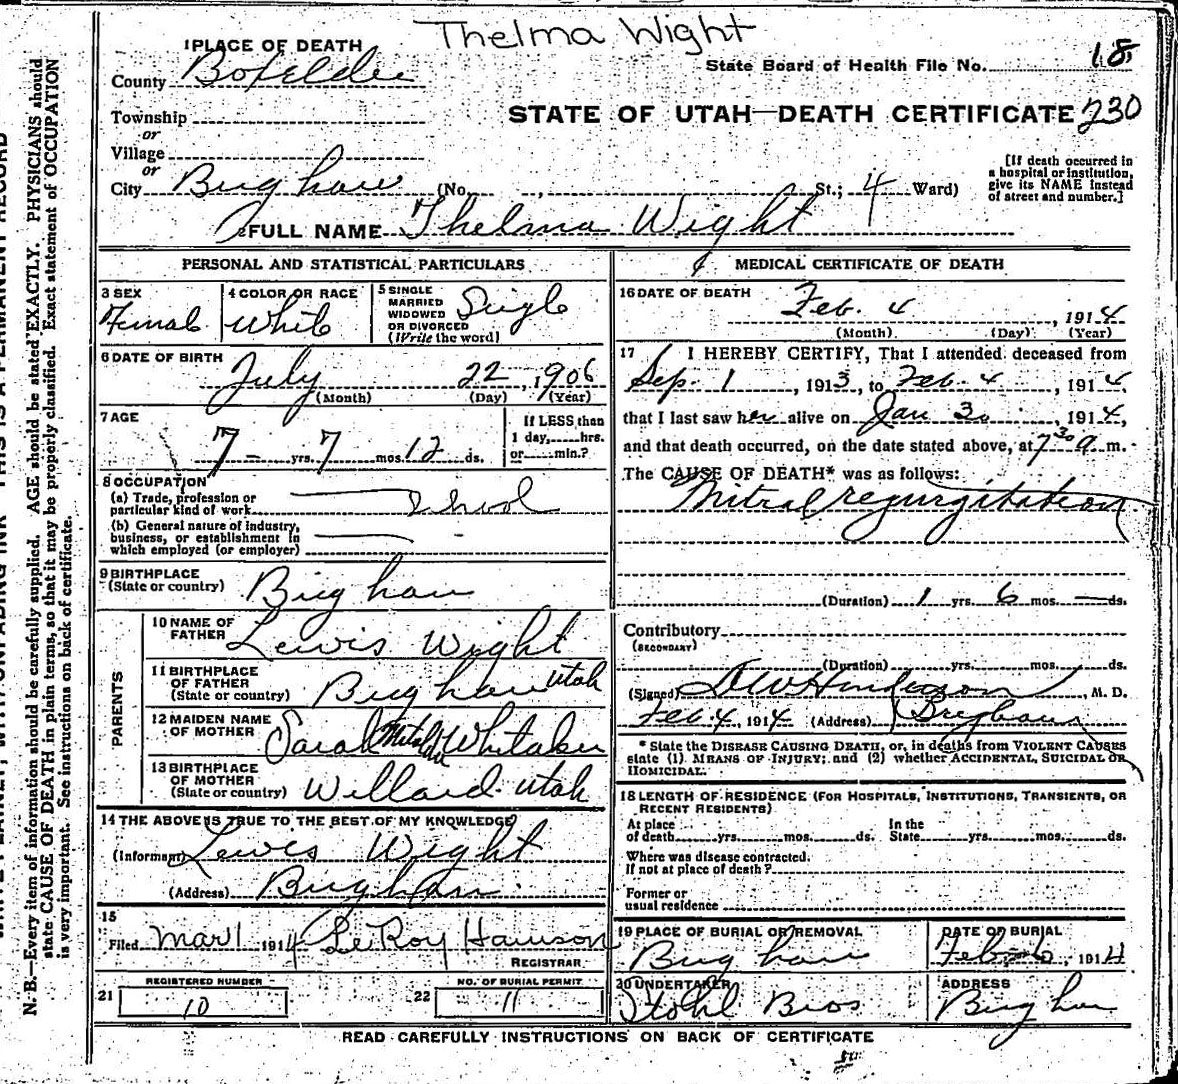 Thelma Wight
1 PLACE OF DEATH
State Board of Health File No. 18
County Boxelder
STATE OF UTAH—DEATH CERTIFICATE 230
Township
or
Village
or
City Brigham (No. , St.; 4 Ward)
[If death occurred in
a hospital or institution,
give its NAME instead
of street and number.]
2 FULL NAME Thelma Wight
PERSONAL AND STATISTICAL PARTICULARS
3 SEX
Female
4 COLOR OR RACE
White
5 SINGLE
MARRIED
WIDOWED
OR DIVORCED
(Write the word)
Single
6 DATE OF BIRTH
July 22, 1906
(Month) (Day) (Year)
7 AGE
7 yrs. 7 mos. 12 ds.
If LESS than
1 day, hrs.
or min.?
8 OCCUPATION
(a) Trade, profession or
particular kind of work School
(b) General nature of industry,
business, or establishment in
which employed (or employer)
9 BIRTHPLACE
(State or country) Brigham
PARENTS
10 NAME OF
FATHER Lewis Wight
11 BIRTHPLACE
OF FATHER
(State or country) Brigham Utah
12 MAIDEN NAME
OF MOTHER Sarah Whitaker
13 BIRTHPLACE
OF MOTHER
(State or country) Willard Utah
14 THE ABOVE IS TRUE TO THE BEST OF MY KNOWLEDGE
(Informant) Lewis Wight
(Address) Brigham
15
Filed Mar 1 1914 LeRoy
REGISTRAR
REGISTERED NUMBER
21 10
NO. OF BURIAL PERMIT
22 11
MEDICAL CERTIFICATE OF DEATH
16 DATE OF DEATH
Feb. 4, 1914
(Month) (Day) (Year)
17 I HEREBY CERTIFY, That I attended deceased from
Sep. 1, 1913, to Feb. 4, 1914,
that I last saw her alive on Jan 30, 1914,
and that death occurred, on the date stated above, at 7 30 a m.
The CAUSE OF DEATH* was as follows:
Mitral regurgitation
(Duration) 1 yrs. 6 mos. — ds.
Contributory
(SECONDARY)
(Duration) yrs. mos. ds.
(Signed) , M. D.
Feb. 4, 1914 (Address) Brigham
* State the DISEASE CAUSING DEATH, or, in deaths from VIOLENT CAUSES
state (1) MEANS OF INJURY; and (2) whether ACCIDENTAL, SUICIDAL OR
HOMICIDAL.
18 LENGTH OF RESIDENCE (FOR HOSPITALS, INSTITUTIONS, TRANSIENTS, OR
RECENT RESIDENTS)
At place
of death yrs. mos. ds.
In the
State yrs. mos. ds.
Where was disease contracted,
if not at place of death?
Former or
usual residence
19 PLACE OF BURIAL OR REMOVAL
Brigham
DATE OF BURIAL
Feb 6, 1914
20 UNDERTAKER
Stohl Bros
ADDRESS
Brigham
READ CAREFULLY INSTRUCTIONS ON BACK OF CERTIFICATE
N. B.—Every item of information should be carefully supplied. AGE should be stated EXACTLY. PHYSICIANS should
state CAUSE OF DEATH in plain terms, so that it may be properly classified. Exact statement of OCCUPATION
is very important. See instructions on back of certificate.